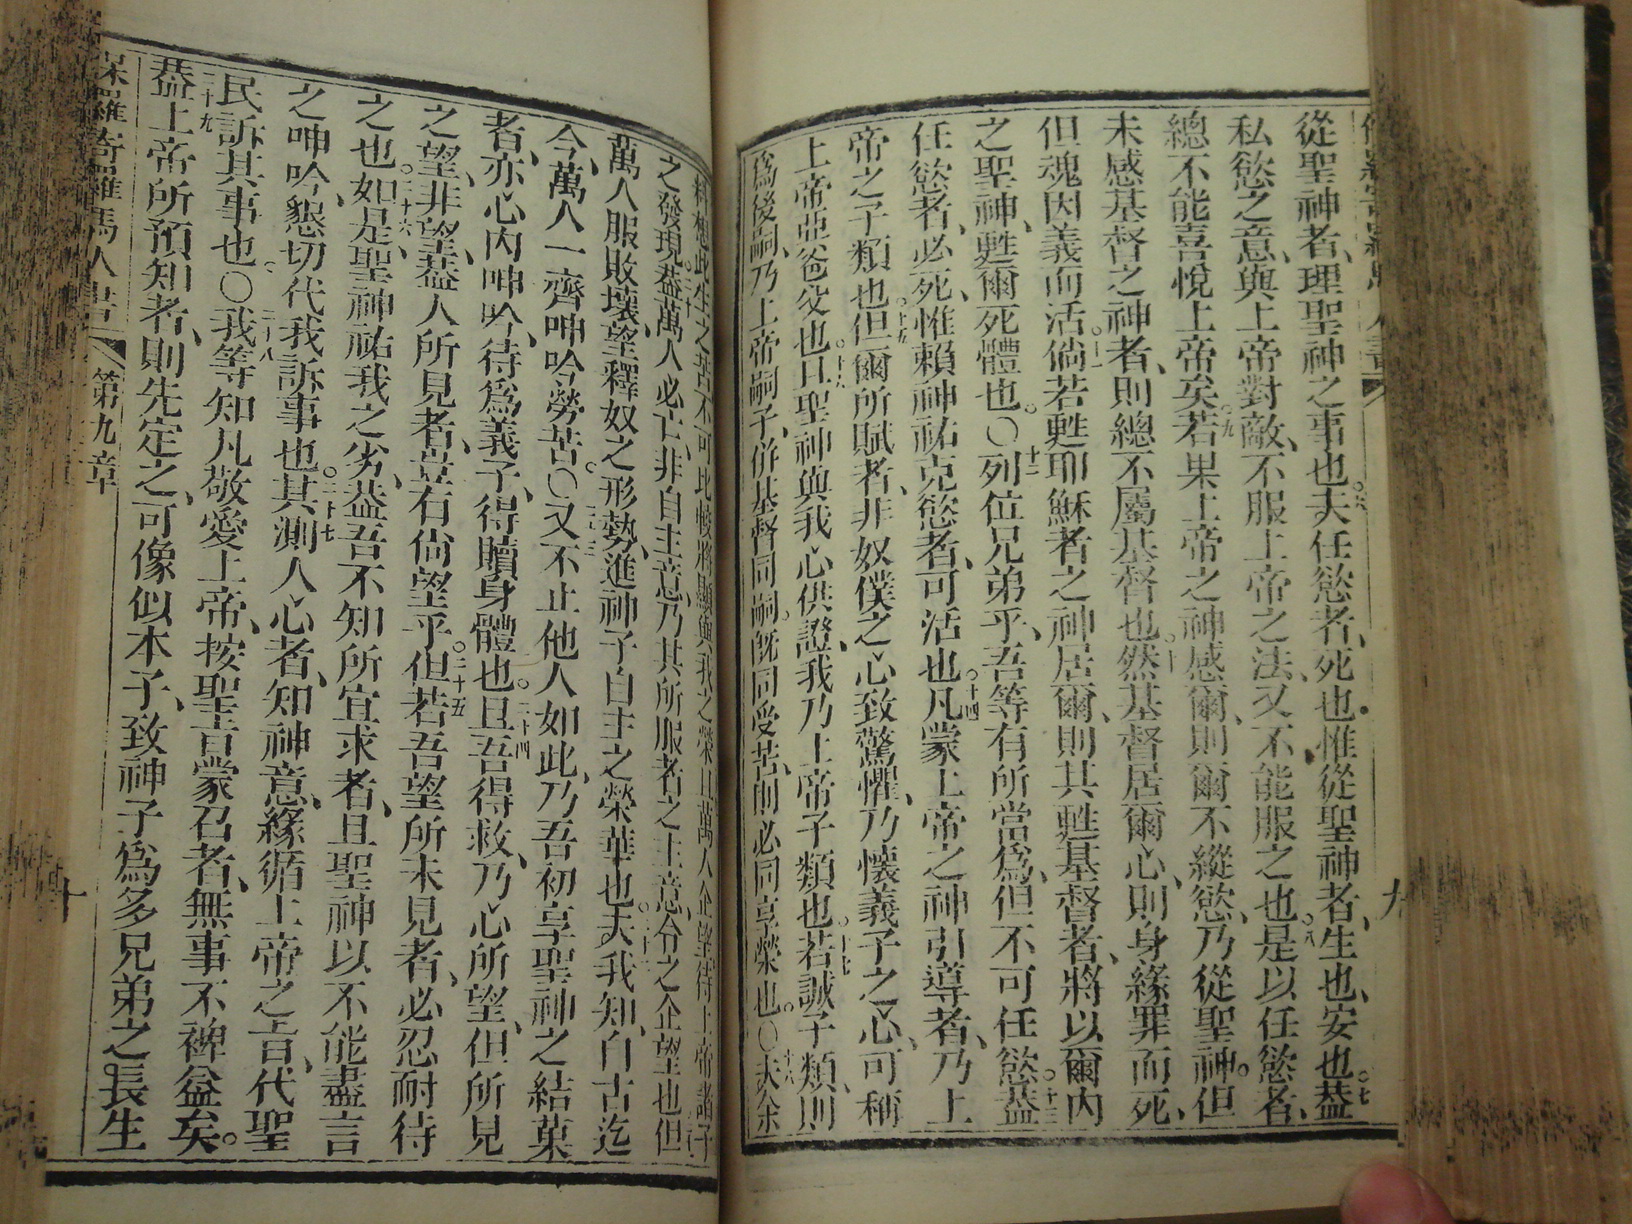 從聖神者、理聖神之事也。六夫任慾者、死也、惟從聖神者、生也、安也。七葢
私慾之意、與上帝對敵、不服上帝之法、又不能服之也。八是以任慾者、
總不能喜悅上帝矣。九若果上帝之神感爾、則爾不縱慾、乃從聖神。但
未感基督之神者、則總不屬基督也。十然基督居爾心、則身緣罪而死、
但魂因義而活。十一倘若甦耶穌者之神居爾、則其甦基督者、將以爾內
之聖神、甦爾死體也。○十二列位兄弟乎、吾等有所當為、但不可任慾。十三葢
任慾者、必死、惟賴神祐克慾者、可活也。十四凡蒙上帝之神引導者、乃上
帝之子類也。十五但爾所賦者、非奴僕之心致驚懼、乃懷義子之心、可稱
上帝亞爸父也。十六且聖神與我心供證、我乃上帝子類也。十七若誠子類、則
為後嗣、乃上帝嗣子、併基督同嗣。既同受苦、則必同享榮也。○十八夫余
料想此生之苦、不可比較將顯與我之榮。且萬人企望待上帝諸子
之發現。二十葢萬人必亡、非自主意、乃其所服者之主意、令之企望也。但
萬人服敗壞、望釋奴之形勢、進神子自主之榮華也。夫我知、自古迄
今、萬人一齊呻吟勞苦。○二十三又不止他人如此、乃吾初享聖神之結菓
者、亦心內呻吟、待為義子、得贖身體也。二十四且吾得救、乃心所望、但所見
之望、非望、葢人所見者、豈有尚望乎。二十五但若吾望所未見者、必忍耐待
之也。二十六如是聖神祐我之劣、葢吾不知所宜求者、且聖神以不能盡言
之呻吟、懇切代我訴事也。二十七其測人心者、知神意、緣循上帝之旨、代聖
民訴其事也。○二十八我等知凡敬愛上帝、按聖旨蒙召者、無事不裨益矣。
二十九葢上帝所預知者、則先定之、可像似本子、致神子為多兄弟之長生
保羅寄羅馬人書 第九章 十